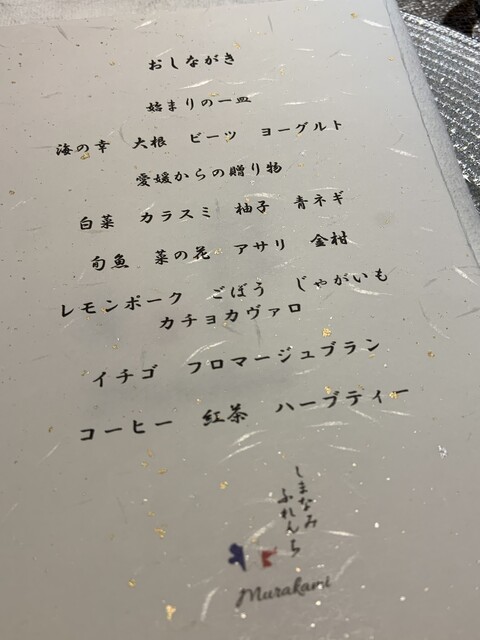 おしながき
始まりの一皿
海の幸 大根 ビーツ ヨーグルト
愛媛からの贈り物
白菜 カラスミ 柚子 青ネギ
旬魚 菜の花 アサリ 金柑
レモンポーク ごぼう じゃがいも
カチョカヴァロ
イチゴ フロマージュブラン
コーヒー 紅茶 ハーブティー
しまなみ
ふれんち
Murakami